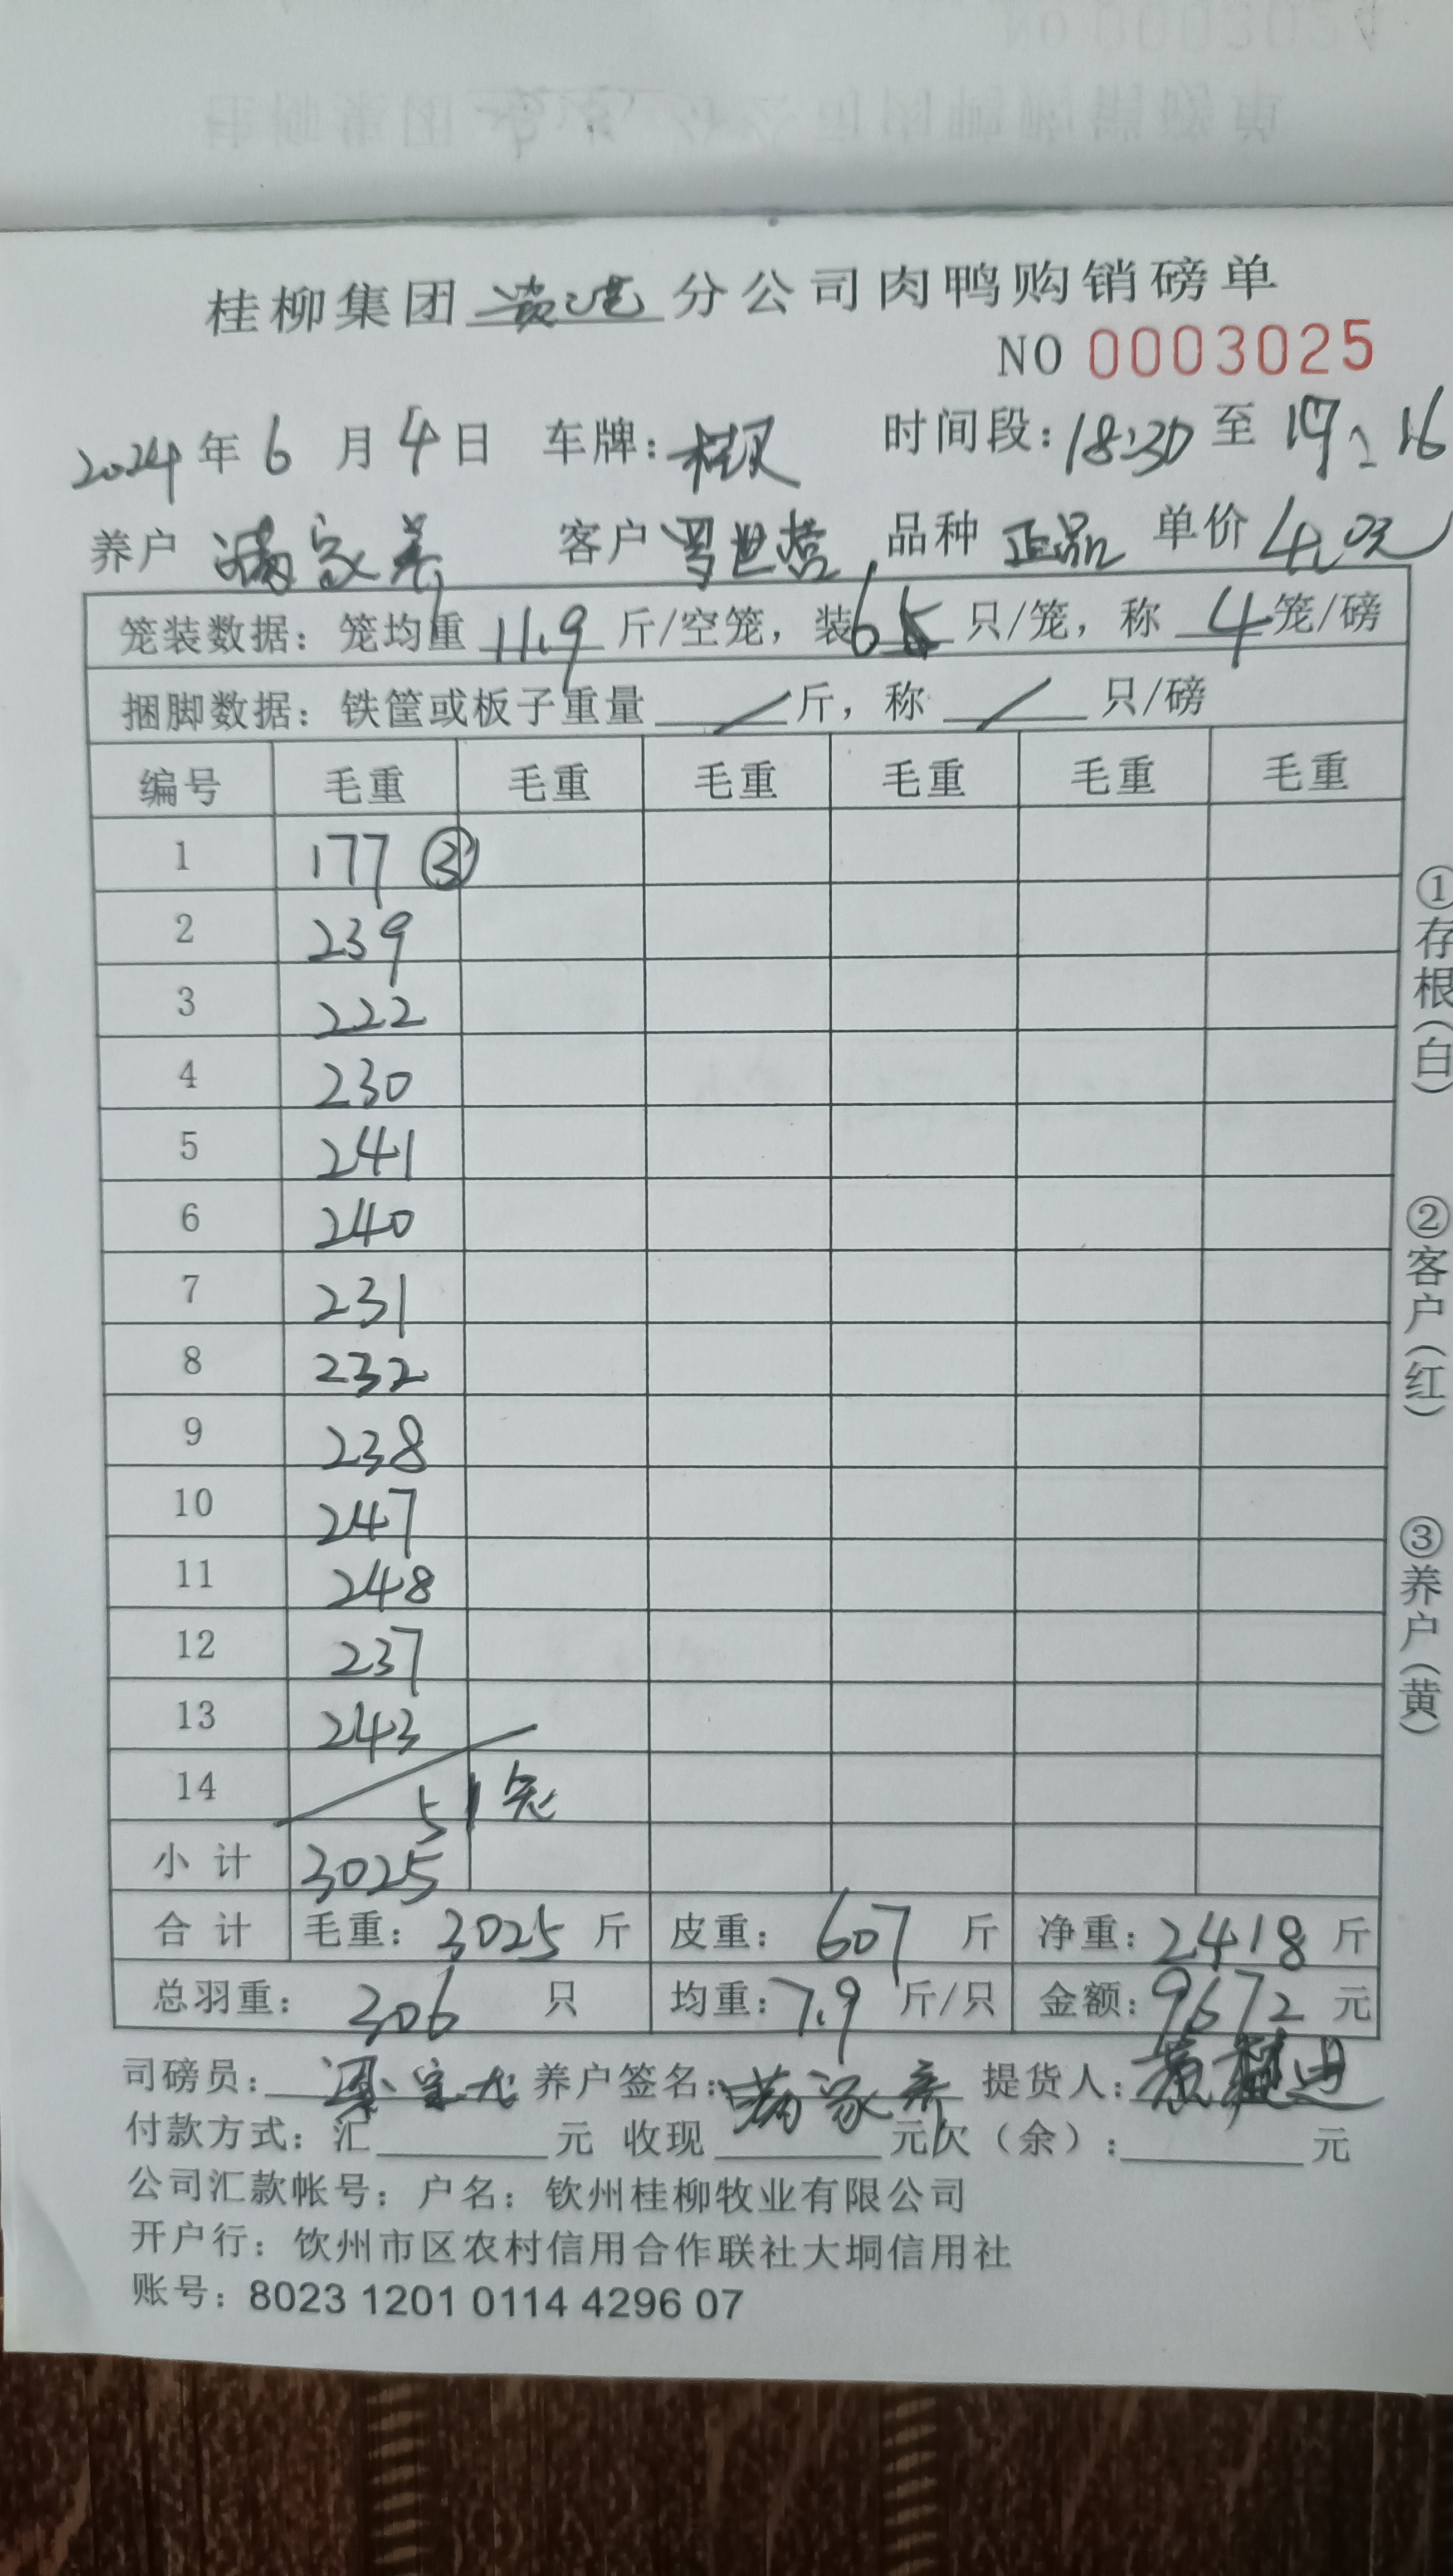 桂柳集团贵港分公司肉鸭购销磅单
NO 0003025
2024年6月4日 车牌: 时间段:18:30至19:16
养户 客户 罗世营 品种 正品 单价 4.0元
笼装数据：笼均重 11.9 斤/空笼，装 6 只/笼，称 4 笼/磅
捆脚数据：铁筐或板子重量 / 斤，称 / 只/磅
编号 毛重 毛重 毛重 毛重 毛重 毛重
1 177 ③
2 239
3 222
4 230
5 241
6 240
7 231
8 232
9 238
10 247
11 248
12 237
13 243
14 51笼
小计 3025
合计 毛重：3025 斤 皮重：607 斤 净重：2418 斤
总羽重：306 只 均重：7.9 斤/只 金额：9672 元
司磅员： 养户签名： 提货人：
付款方式：汇 元 收现 元欠（余）： 元
公司汇款帐号：户名：钦州桂柳牧业有限公司
开户行：钦州市区农村信用合作联社大垌信用社
账号：8023 1201 0114 4296 07
①存根（白）
②客户（红）
③养户（黄）